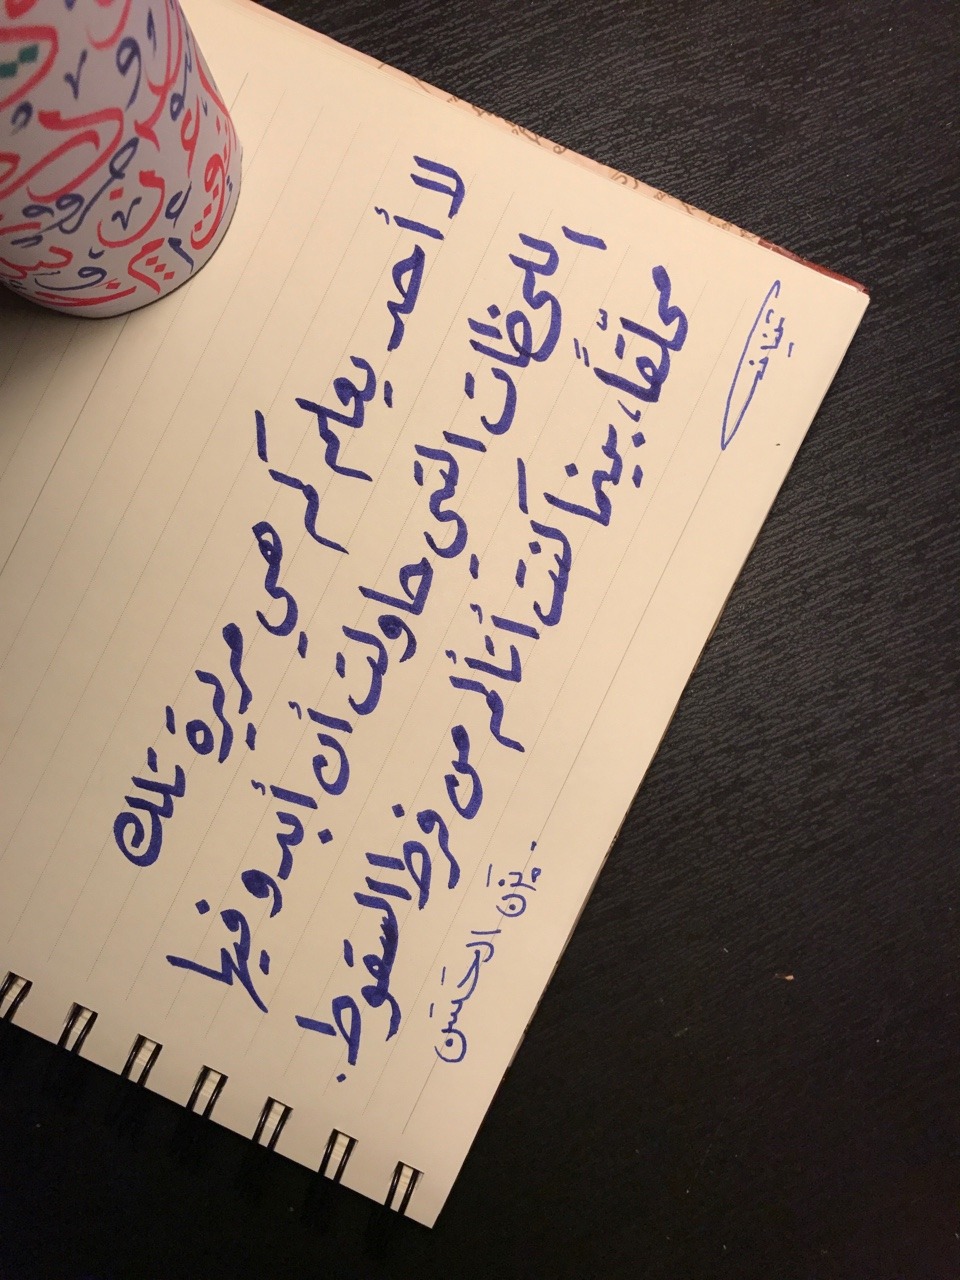 لا أحد يعلم كم هي مريرة تلك
اللحظات التي حاولت أن أبدو فيها
محلّقاً، بينما كنت أتألم من فرط السقوط.
يَزَن الحَسَن.